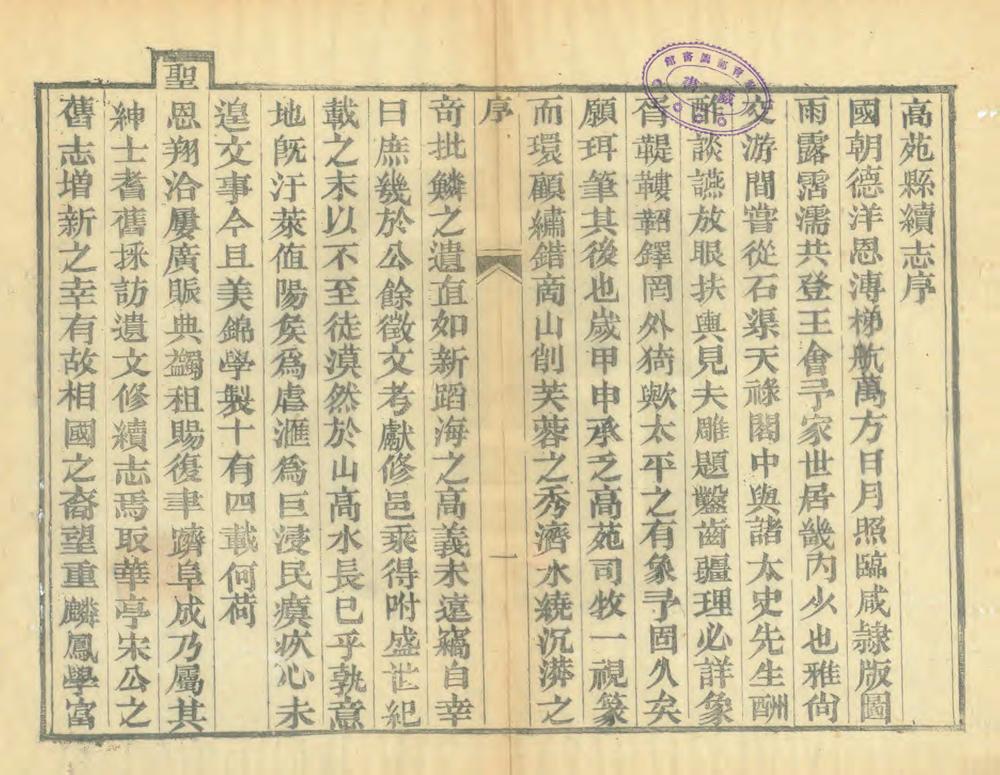 高苑縣續志序
國朝德洋恩溥梯航萬方日月照臨咸隷版圖
雨露霑濡共登王會予家世居畿內少也雅尙
交游間嘗從石渠天祿閣中與諸太史先生酬
酢談讌放眼扶輿見夫雕題鑿齒疆理必詳象
胥鞮鞻軺鐸罔外猗歟太平之有象予固久矣
願珥筆其後也歲甲申承乏高苑司牧一視篆
而環顧繡錯商山削芙蓉之秀濟水繞沉漭之
序
一
奇批鱗之遺直如新蹈海之高義未遠竊自幸
曰庶幾於公餘徵文考獻修邑乘得附盛世紀
載之末以不至徒漠然於山高水長已乎孰意
地旣汙萊值陽矦爲虐滙爲巨浸民瘼疚心未
遑文事今且美錦學製十有四載何荷
聖
恩翔洽屢廣賑典蠲租賜復聿躋阜成乃屬其
紳士耆舊採訪遺文修續志焉取華亭宋公之
舊志增新之幸有故相國之裔望重麟鳳學富